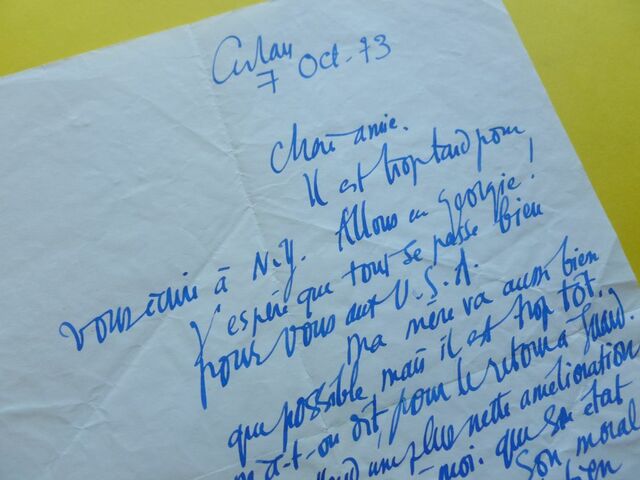 Arlon
7 Oct. 73
Chère amie.
Il est trop tard pour
vous écrire à N.Y. Allons en georgie!
J'espère que tout se passe bien
pour vous aux U.S.A.
Ma mère va aussi bien
que possible mais il est trop tôt,
m'a-t-on dit, pour le retour à
une plus nette amélioration
moi. que son état
son moral
bien